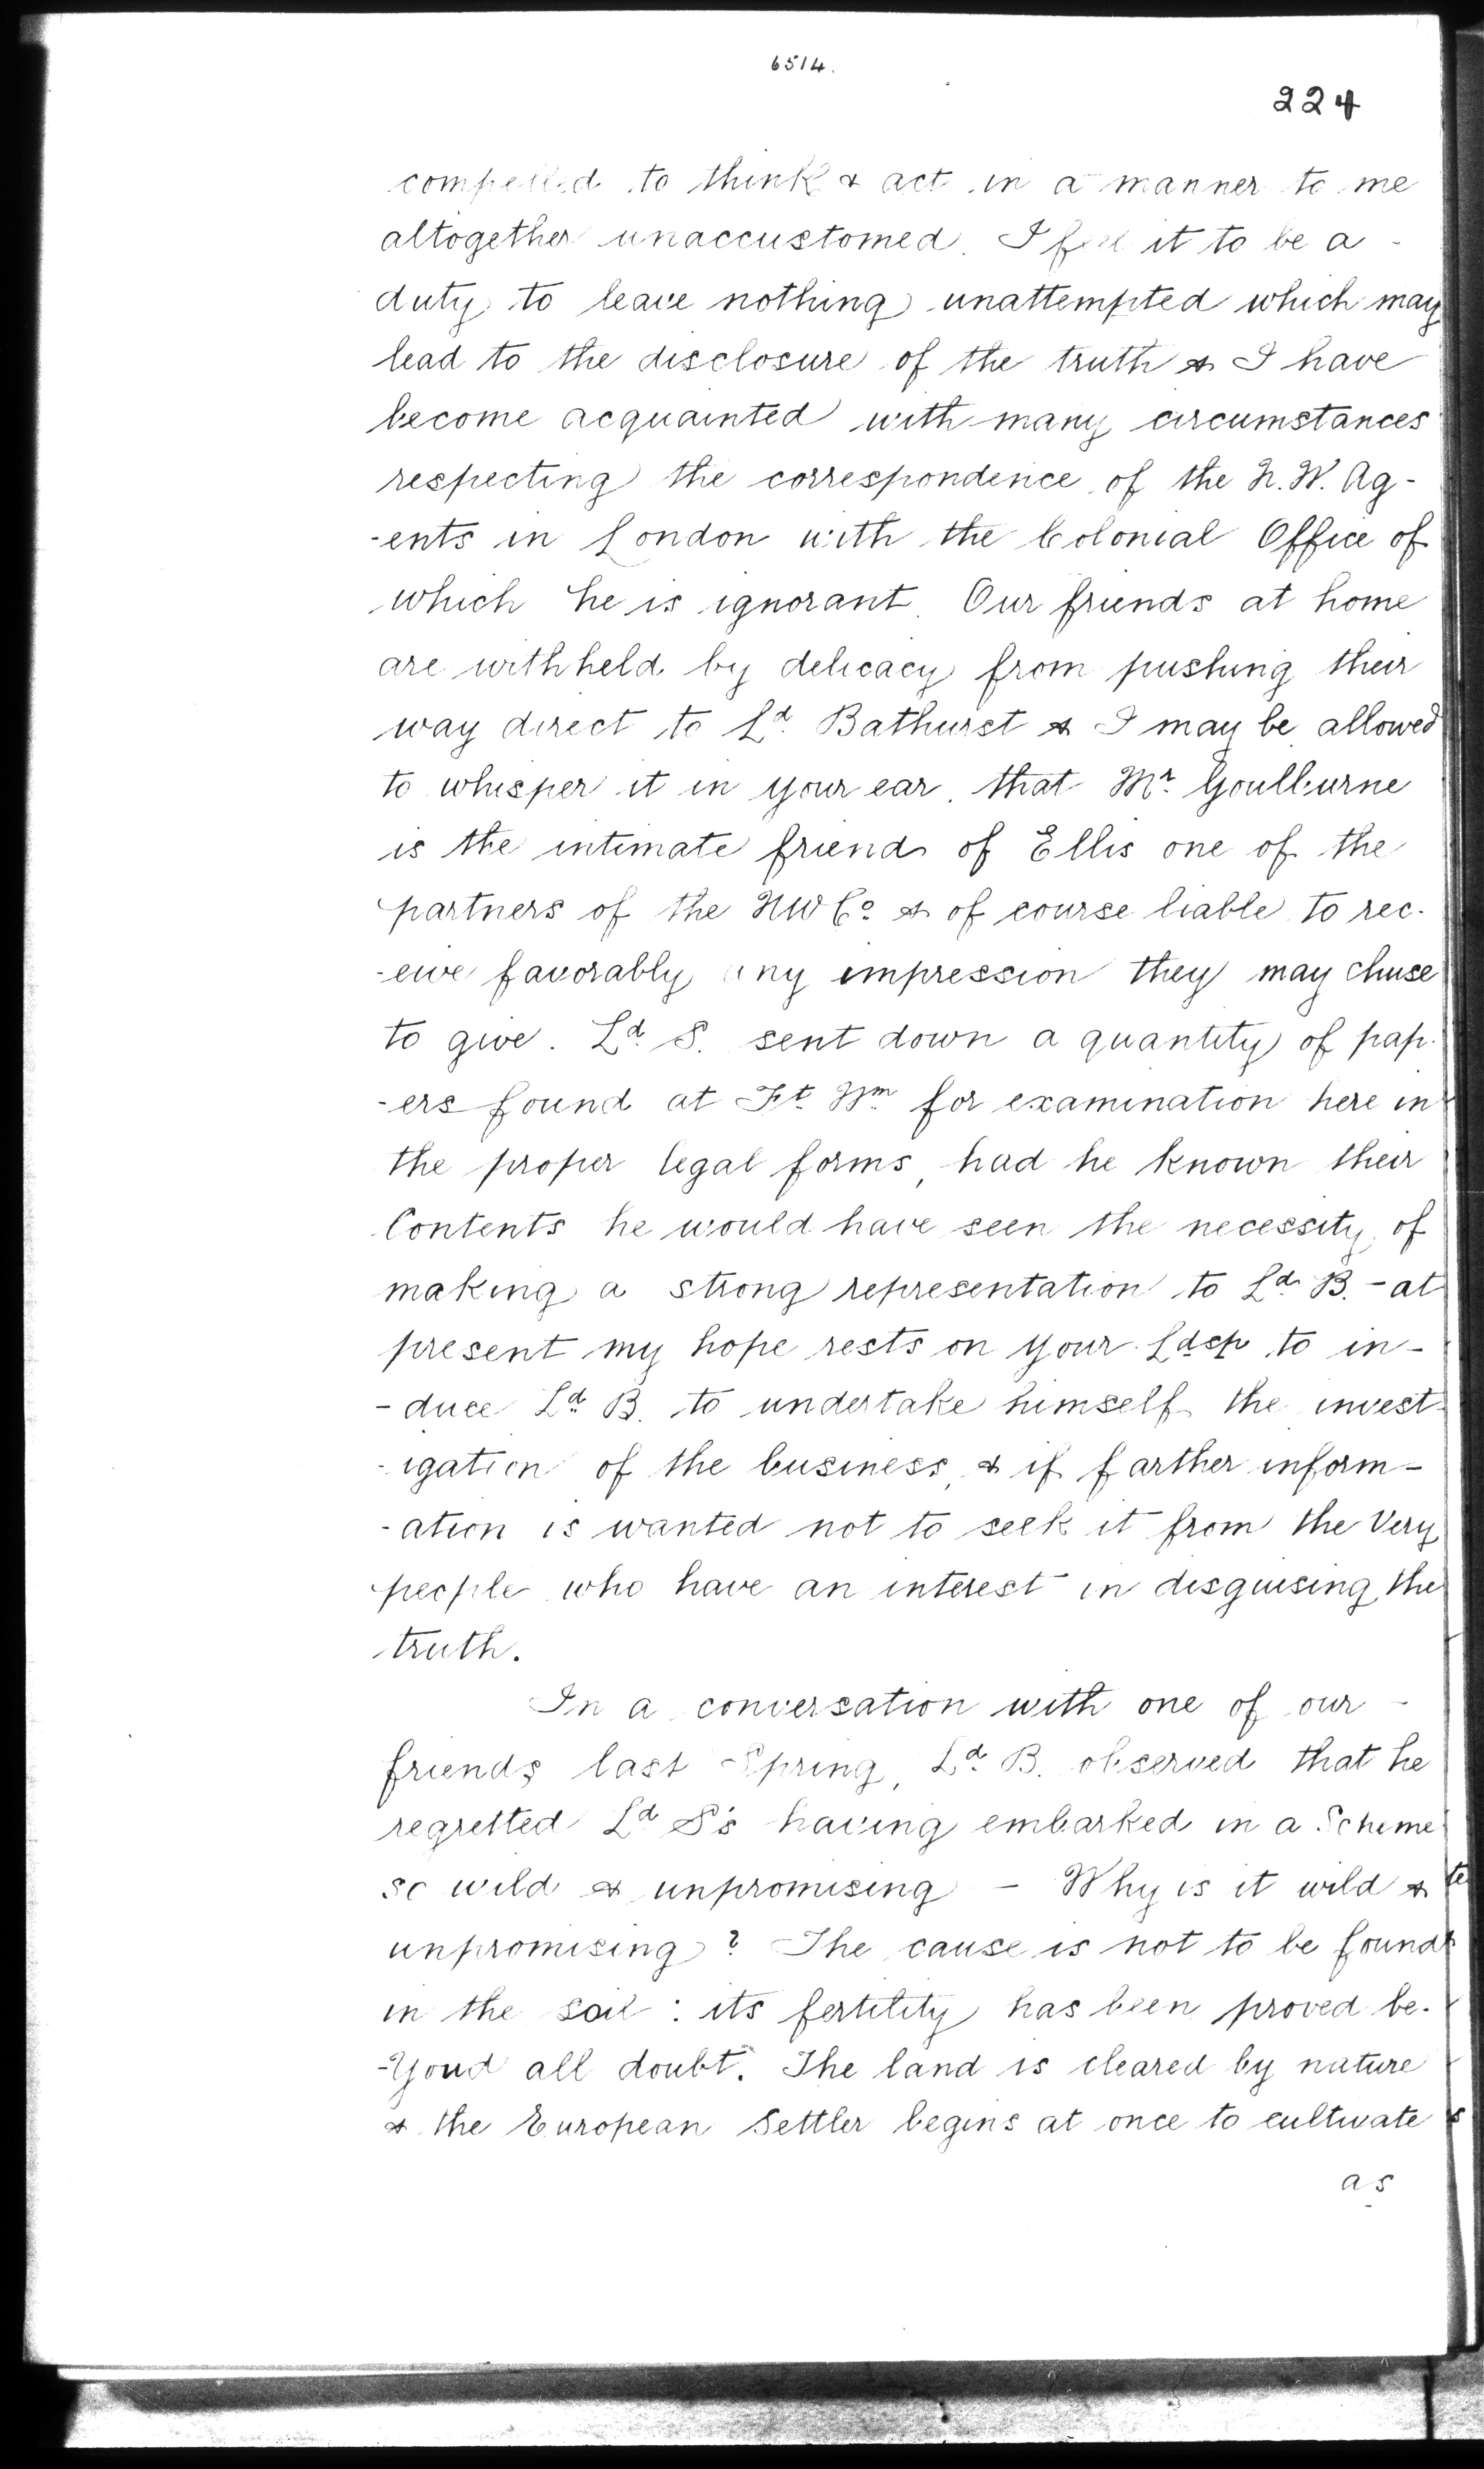 6514.
224
compelled to think & act in a manner to me
altogether unaccustomed. I feel it to be a -
duty to leave nothing unattempted which may
lead to the disclosure of the truth & I have
become acquainted with many circumstances
respecting the correspondence of the N.W. Ag-
-ents in London with the Colonial Office of
which he is ignorant. Our friends at home
are withheld by delicacy from pushing their
way direct to Ld. Bathurst & I may be allowed
to whisper it in your ear, that Mr. Goulburne
is the intimate friend of Ellis one of the
partners of the NW Co. & of course liable to rec-
-eive favorably any impression they may chuse
to give. Ld. S. sent down a quantity of pap-
-ers found at Ft. Wm. for examination here in
the proper legal forms, had he known their
Contents he would have seen the necessity of
making a strong representation to Ld. B. - at
present my hope rests on your Ldsp to in-
-duce Ld. B. to undertake himself the invest-
-igation of the business, & if farther inform-
-ation is wanted not to seek it from the Very
people who have an interest in disguising the
truth.
In a conversation with one of our -
friends last Spring, Ld. B. observed that he
regretted Ld S's having embarked in a Scheme
so wild & unpromising - Why is it wild &
unpromising? The cause is not to be found
in the soil: its fertility has been proved be-
-Yond all doubt. The land is cleared by nature
& the European Settler begins at once to cultivate
as